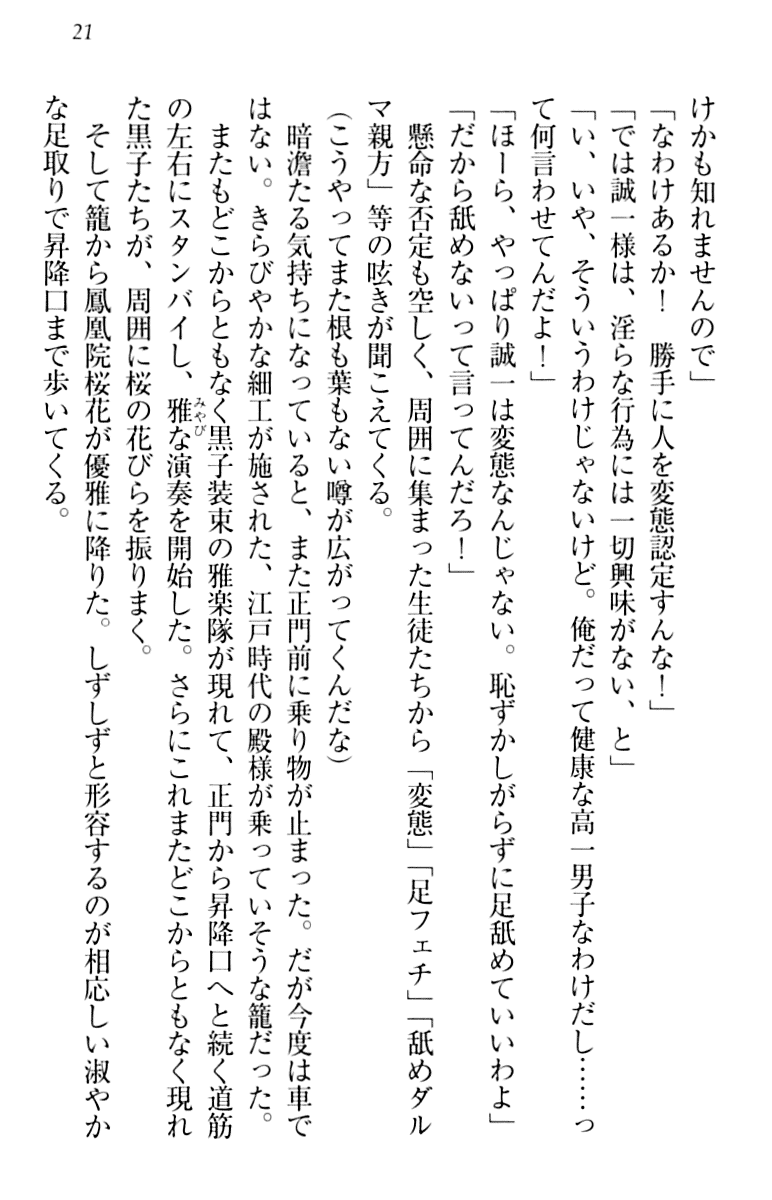 21
けかも知れませんので」
「なわけあるか！　勝手に人を変態認定すんな！」
「では誠一様は、淫らな行為には一切興味がない、と」
「い、いや、そういうわけじゃないけど。俺だって健康な高一男子なわけだし……っ
て何言わせてんだよ！」
「ほーら、やっぱり誠一は変態なんじゃない。恥ずかしがらずに足舐めていいわよ」
「だから舐めないって言ってんだろ！」
　懸命な否定も空しく、周囲に集まった生徒たちから「変態」「足フェチ」「舐めダル
マ親方」等の呟きが聞こえてくる。
（こうやってまた根も葉もない噂が広がってくんだな）
　暗澹たる気持ちになっていると、また正門前に乗り物が止まった。だが今度は車で
はない。きらびやかな細工が施された、江戸時代の殿様が乗っていそうな籠だった。
　またもどこからともなく黒子装束の雅楽隊が現れて、正門から昇降口へと続く道筋
の左右にスタンバイし、雅な演奏を開始した。さらにこれまたどこからともなく現れ
みやび
た黒子たちが、周囲に桜の花びらを振りまく。
　そして籠から鳳凰院桜花が優雅に降りた。しずしずと形容するのが相応しい淑やか
な足取りで昇降口まで歩いてくる。